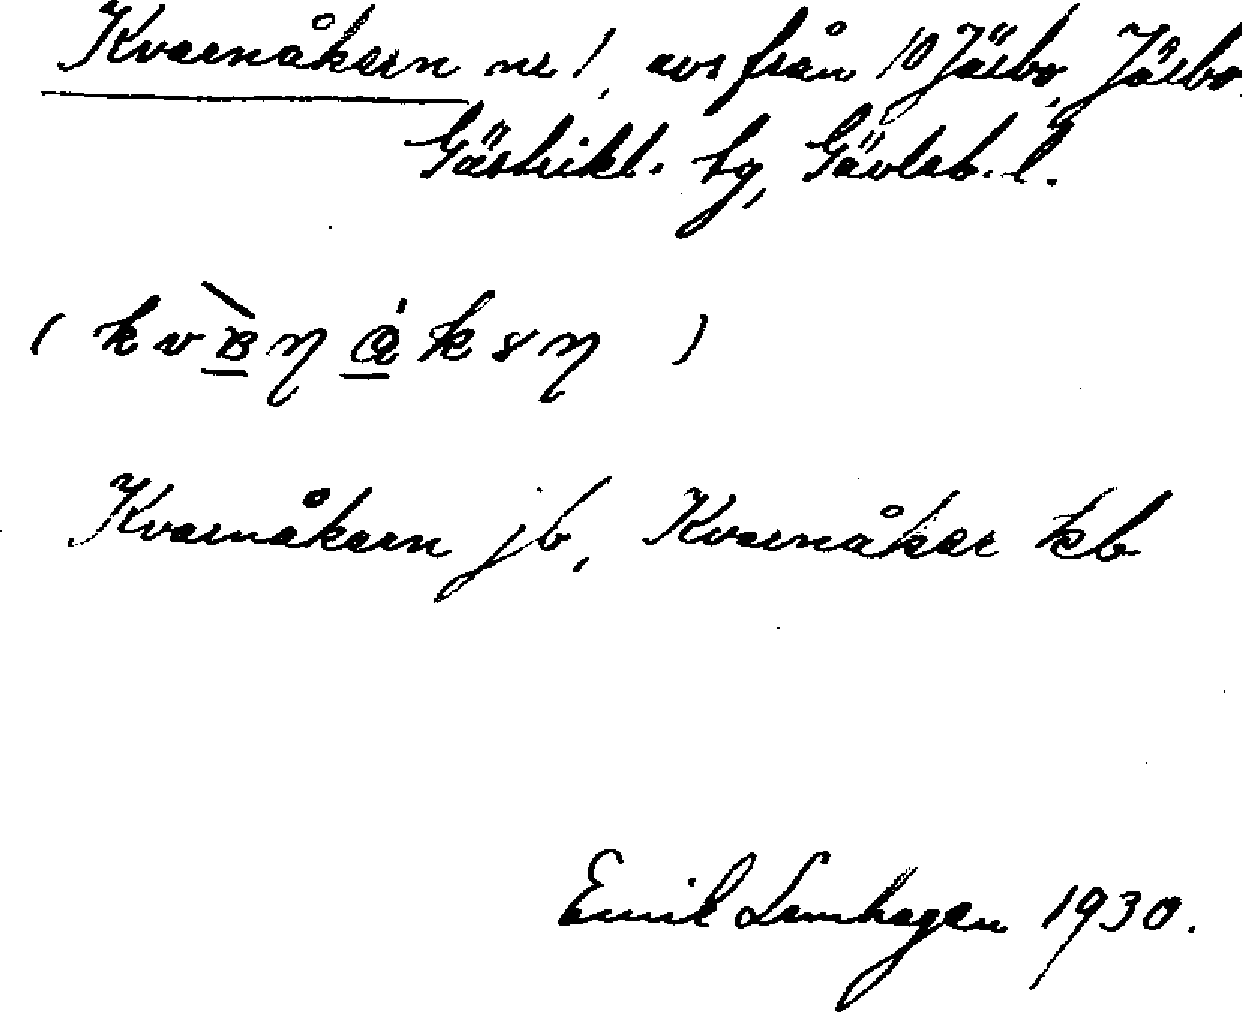 Kvarnåkern nr 1, avs från 10 Järbo, Järbo
Gästrikl. tg, Gävleb. l.
Kvarnåkern jb, Kvarnåker kb
Emil Lemhagen 1930.